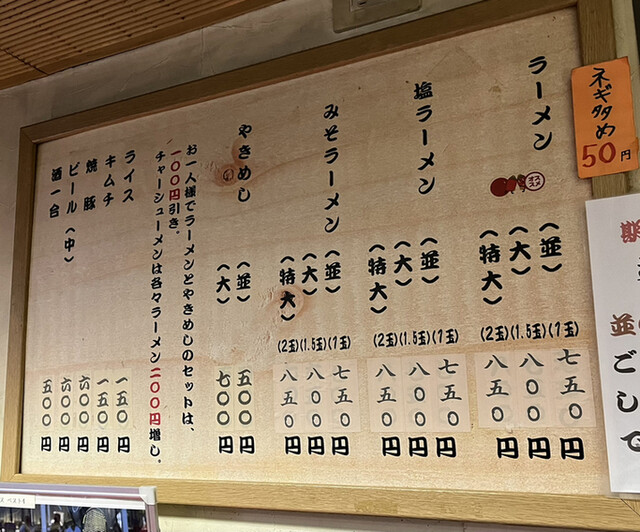 ネギ多め
50円
ラーメン
オス
スメ
(並)
(1玉)
七五〇円
(大)
(1.5玉)
八〇〇円
(特大)
(2玉)
八五〇円
塩ラーメン
(並)
(1玉)
七五〇円
(大)
(1.5玉)
八〇〇円
(特大)
(2玉)
八五〇円
みそラーメン
(並)
(1玉)
七五〇円
(大)
(1.5玉)
八〇〇円
(特大)
(2玉)
八五〇円
やきめし
(並)
五〇〇円
(大)
七〇〇円
お一人様でラーメンとやきめしのセットは、
一〇〇円引き。
チャーシューメンは各々ラーメン二〇〇円増し。
ライス
一五〇円
キムチ
一五〇円
焼豚
六〇〇円
ビール(中)
六〇〇円
酒一合
五〇〇円
並
ごして